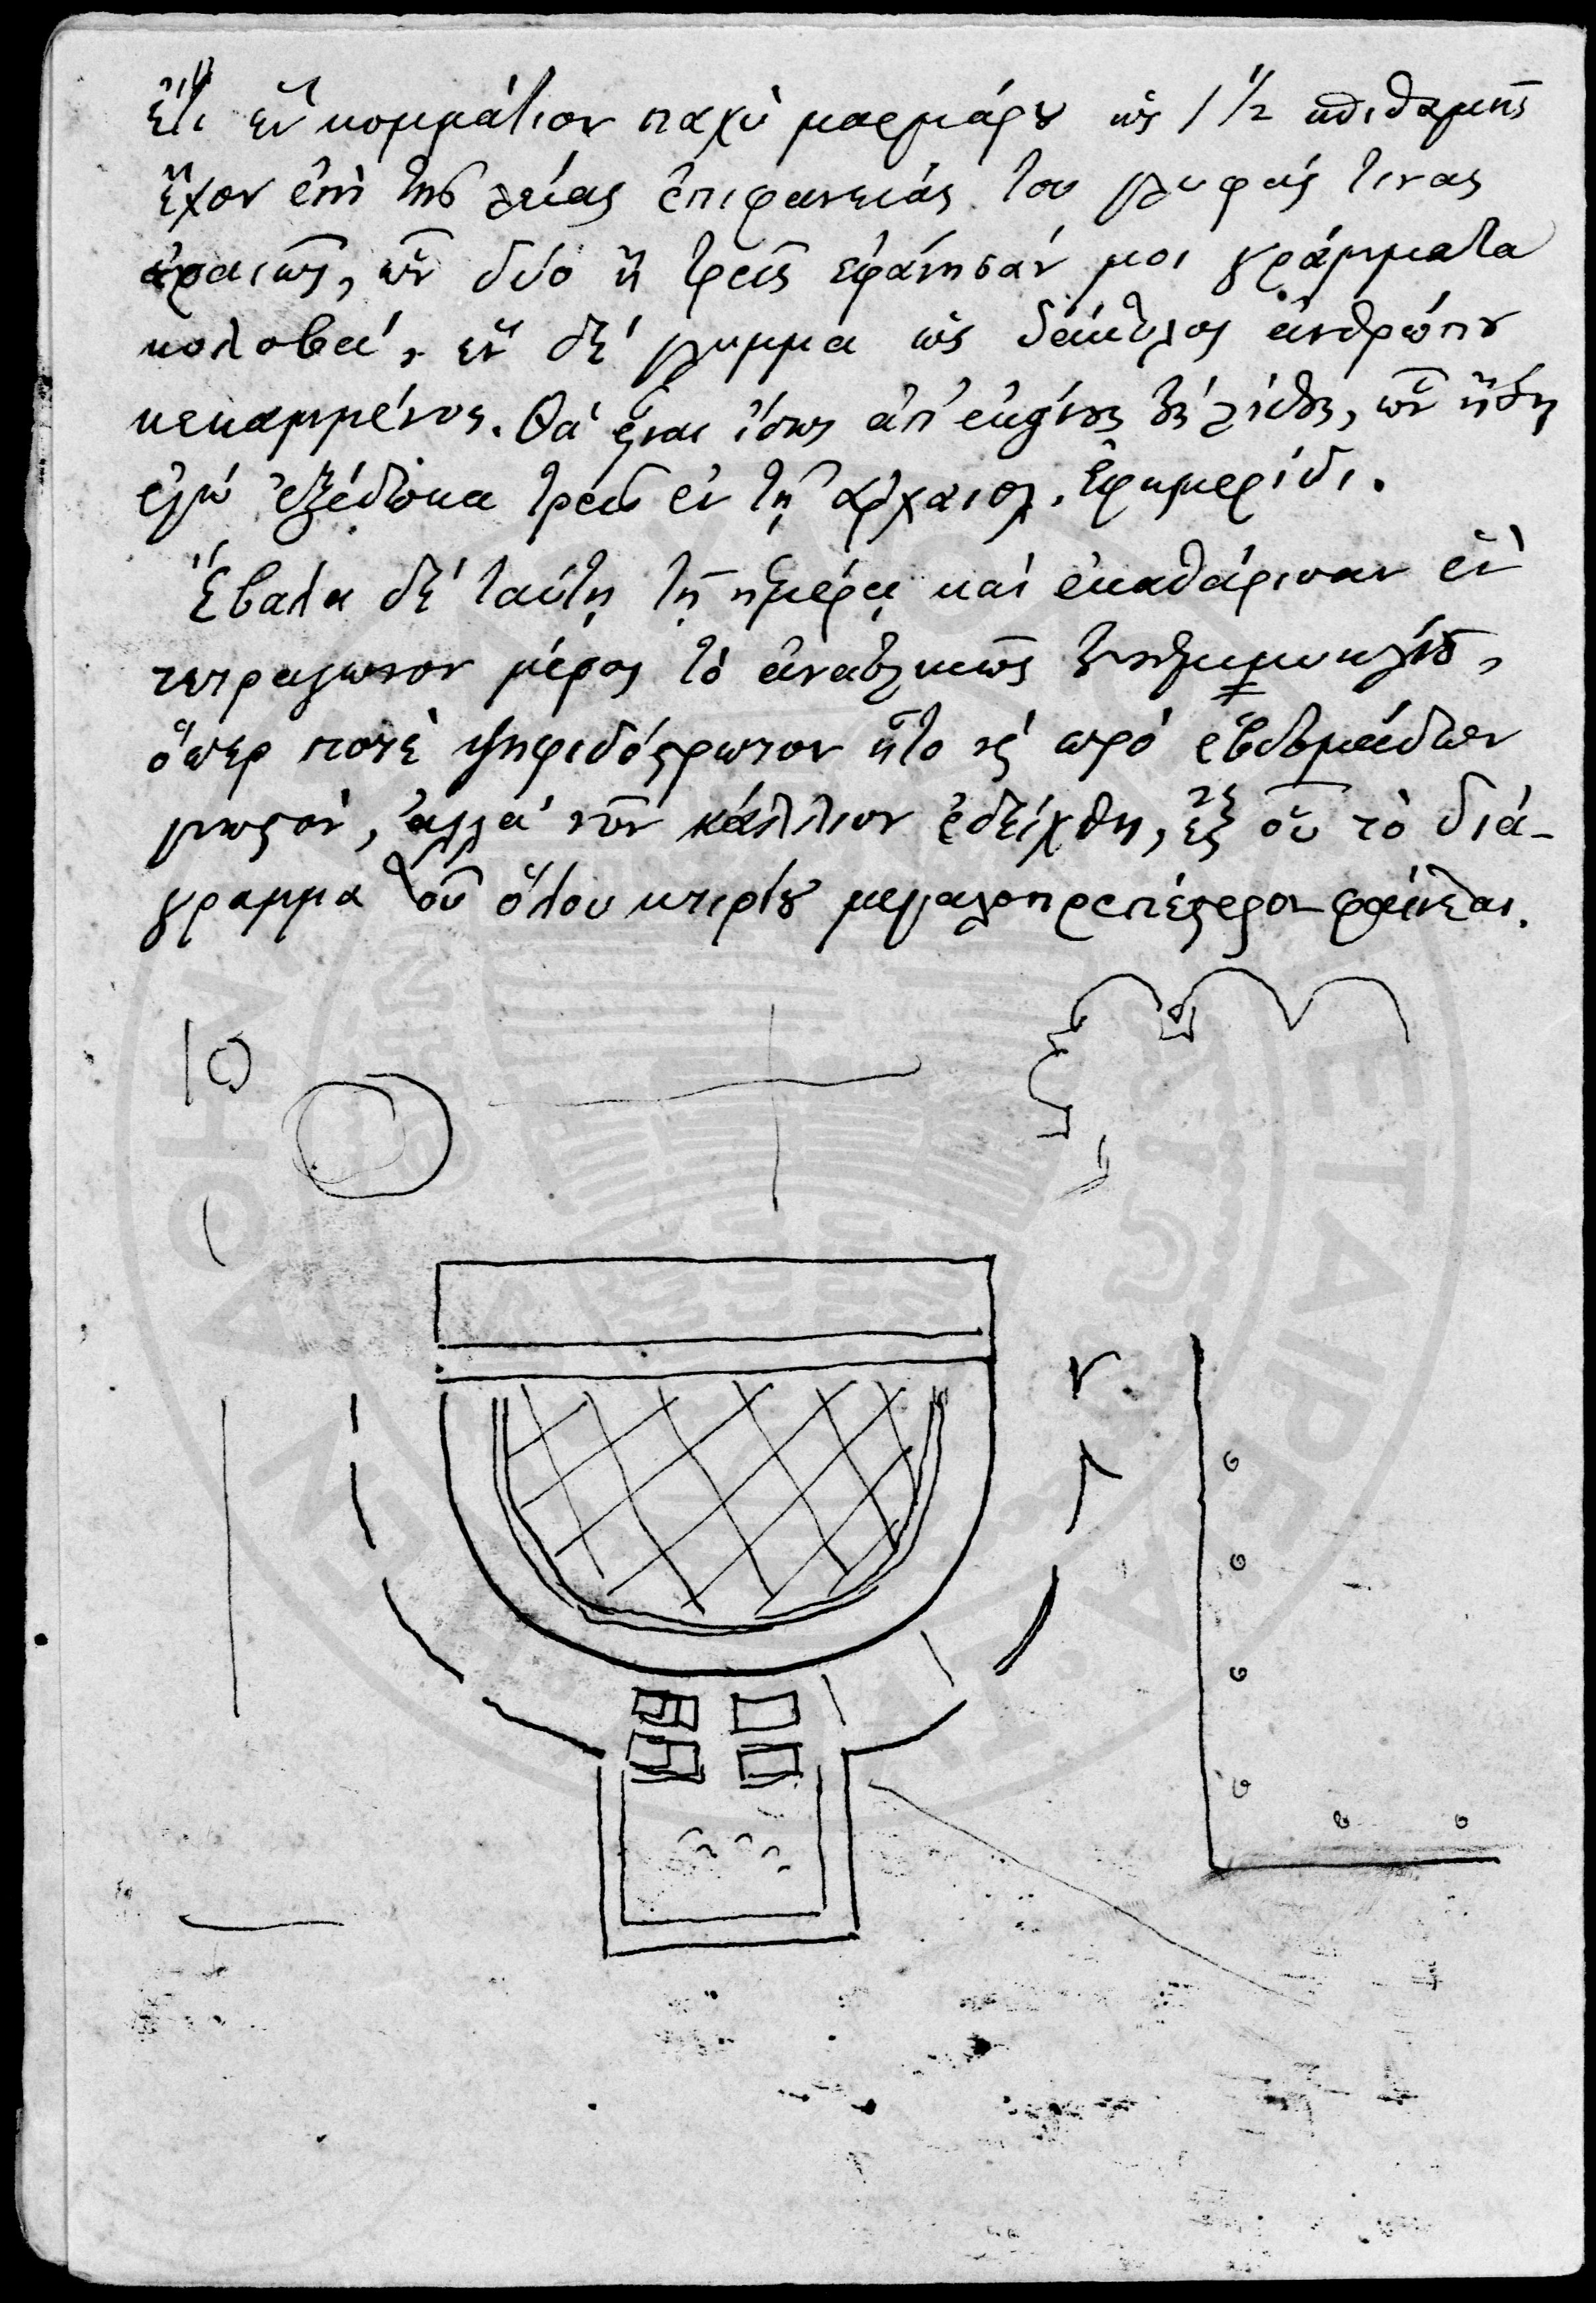 ἔτι ἓν κομμάτιον παχὺ μαρμάρου ὡς 1 1/2 σπιθαμῆς
ἔχον ἐπὶ τῆς λείας ἐπιφανείας του γλυφάς τινας
ἀραιῶς, ὧν δύο ἢ τρεῖς ἐφάνησάν μοι γράμματα
κολοβά, ἓν δὲ γλυμμα ὡς δάκτυλος ἀνθρώπου
κεκαμμένος. Θὰ ἦναι ἴσως ἀπ' ἐκείνους τοὺς λίθους, ὧν ἤδη
ἐγὼ ἐξέδωκα τρεῖς ἐν τῇ ἀρχαιολ. Ἐφημερίδι.
Ἔβαλα δὲ ταύτῃ τῇ ἡμέρᾳ καὶ ἐκαθάρισαν ἓν
τετράγωνον μέρος τὸ ἀνατολικῶς τοῦ
ὅπερ ποτὲ ψηφιδόστρωτον ἦτο καὶ πρὸ ἑβδομάδων
γνωστόν, ἀλλὰ νῦν κάλλιον ἐδείχθη, ἐξ οὗ τὸ διά-
γραμμα τοῦ ὅλου κτιρίου μεγαλοπρεπέστερον φαίνεται.
ΕΤΑΙΡΕΙΑ